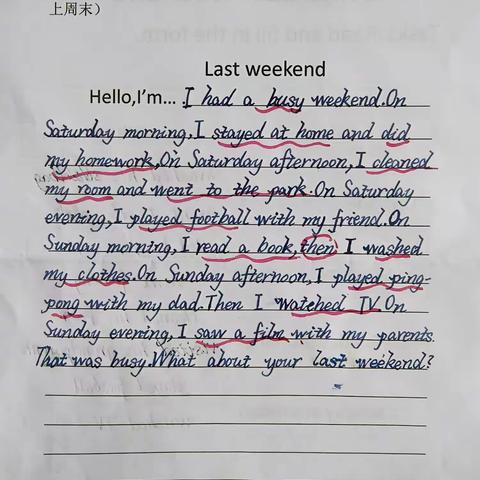 上周末)
Last weekend
Hello,I'm... I had a busy weekend.On
Saturday morning,I stayed at home and did
my homework,On Saturday afternoon,I cleaned
my room and went to the park.On Saturday
evening,I played football with my friend.On
Sunday morning, I read a book,then I washed
my clothes.On Sunday afternoon,I played ping-
pong with my dad.Then I watched TV.On
Sunday evening,I saw a film with my parents.
That was busy.What about your last weekend?